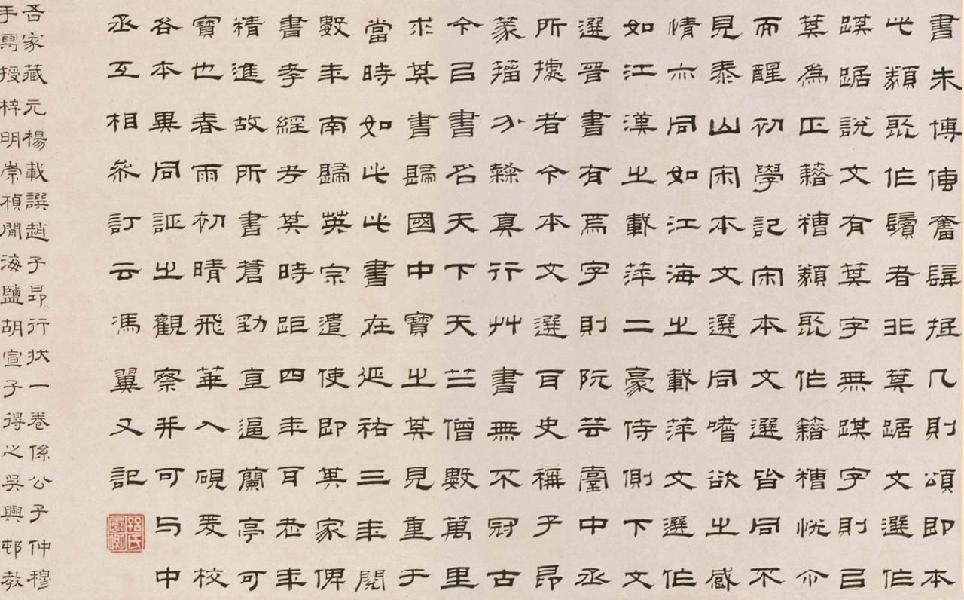 書朱傅傳奮髯抵几則頌即本
此類聚作鬚者非萁踞文選作
踑踞說文有萁字無踑字則㠯
萁為正藉糟類聚作籍糟怳尒
而醒初學記宋本文選皆同不
見泰山宋本文選同嗜欲之感
情亦同如江海之載萍文選作
如江漢之載萍二豪侍側下文
選晉書有焉字則阮芸臺中丞
所據者今本文選耳史稱子昂
篆籀分隸真行艸書無不冠古
今㠯書名天下天竺僧數萬里
求其書歸國中寶之其見重于
當時如此此書在延祐三年閱
數年南歸英宗遣使即其家俾
書孝經考其時距四年耳老年
精進故所書蒼勁直逼蘭亭可
寶也春雨初晴飛華入硯爰校
各本異同証之觀察并可与中
丞互相參訂云馮翼又記
吾家藏元楊載譔趙子昂行狀一卷係公子仲穆
手寫授梓明崇禎間海鹽胡宣子得之吳興邨教